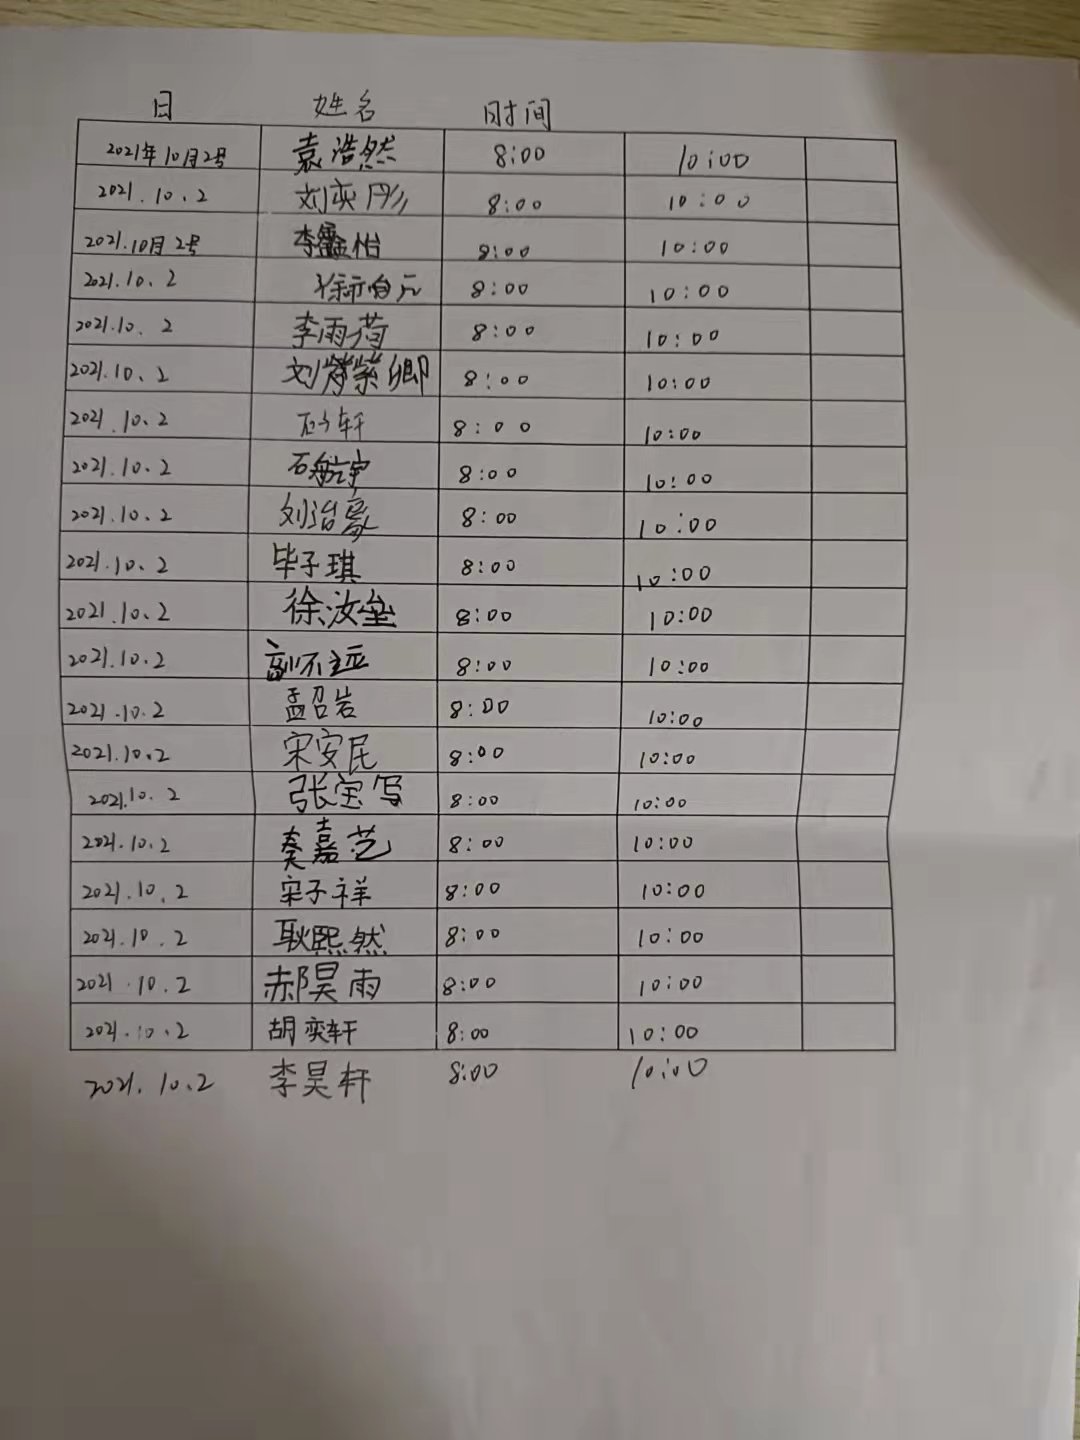 日 姓名 时间
2021年10月2号 袁浩然 8:00 10:00
2021.10.2 刘奕彤 8:00 10:00
2021.10月2号 李鑫怡 8:00 10:00
2021.10.2 8:00 10:00
2021.10.2 李雨荷 8:00 10:00
2021.10.2 刘 紫卿 8:00 10:00
2021.10.2 8:00 10:00
2021.10.2 石航宇 8:00 10:00
2021.10.2 刘治豪 8:00 10:00
2021.10.2 毕子琪 8:00 10:00
2021.10.2 徐汝垒 8:00 10:00
2021.10.2 8:00 10:00
2021.10.2 孟召岩 8:00 10:00
2021.10.2 宋安民 8:00 10:00
2021.10.2 张宝写 8:00 10:00
2021.10.2 嘉艺 8:00 10:00
2021.10.2 宋子祥 8:00 10:00
2021.10.2 耿熙然 8:00 10:00
2021.10.2 郝昊雨 8:00 10:00
2021.10.2 胡奕轩 8:00 10:00
2021.10.2 李昊轩 8:00 10:00